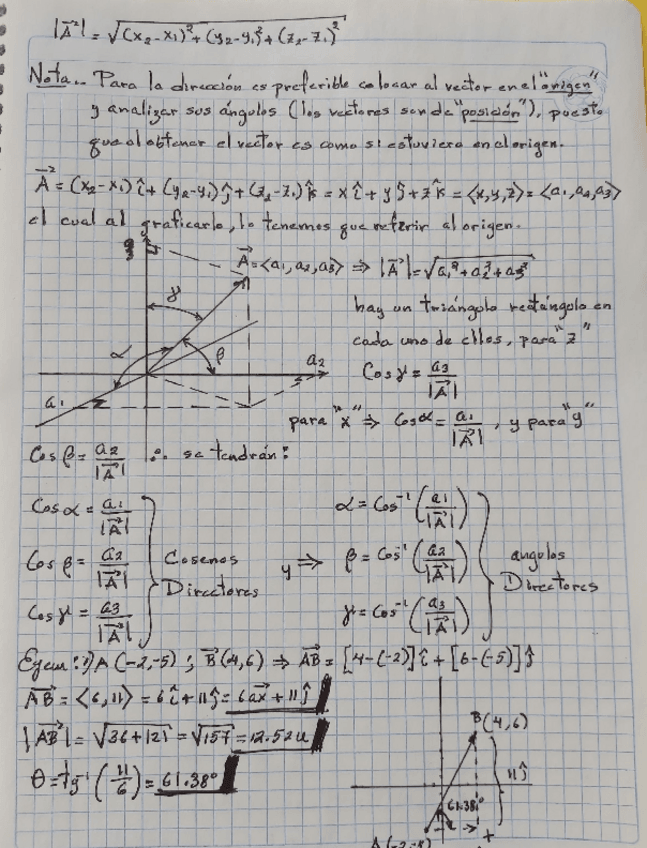 |A⃗| = √(x₂-x₁)²+(y₂-y₁)²+(z₂-z₁)²
Nota.. Para la dirección es preferible colocar al vector en el "origen"
y analizar sus ángulos (los vectores son de "posición"), puesto
que al obtener el vector es como si estuviera en el origen.
A⃗ = (x₂-x₁)î+(y₂-y₁)ĵ+(z₂-z₁)k̂ = xî+yĵ+zk̂ = <x,y,z> = <a₁,a₂,a₃>
el cual al graficarlo, lo tenemos que referir al origen.
A⃗=<a₁,a₂,a₃> ⇒ |A⃗|=√a₁²+a₂²+a₃²
γ
hay un triángulo rectángulo en
cada uno de ellos, para "z"
α β a₂
Cos γ = a₃/|A⃗|
a₁
para "x" ⇒ Cos α = a₁/|A⃗|, y para "y"
Cos β = a₂/|A⃗| ∴ se tendrán:
Cos α = a₁/|A⃗| α = Cos⁻¹(a₁/|A⃗|)
Cos β = a₂/|A⃗| Cosenos Directores y ⇒ β = Cos⁻¹(a₂/|A⃗|) angulos Directores
Cos γ = a₃/|A⃗| γ = Cos⁻¹(a₃/|A⃗|)
Ejem: 1) A(-2,-5) ; B⃗(4,6) ⇒ AB⃗ = [4-(-2)]î+[6-(-5)]ĵ
AB⃗ = <6,11> = 6î+11ĵ = 6ax⃗+11ĵ
B(4,6)
|AB⃗| = √36+121 = √157 = 12.52u
11ĵ
θ = tg⁻¹(11/6) = 61.38°
61.38°
A(-2,-5)